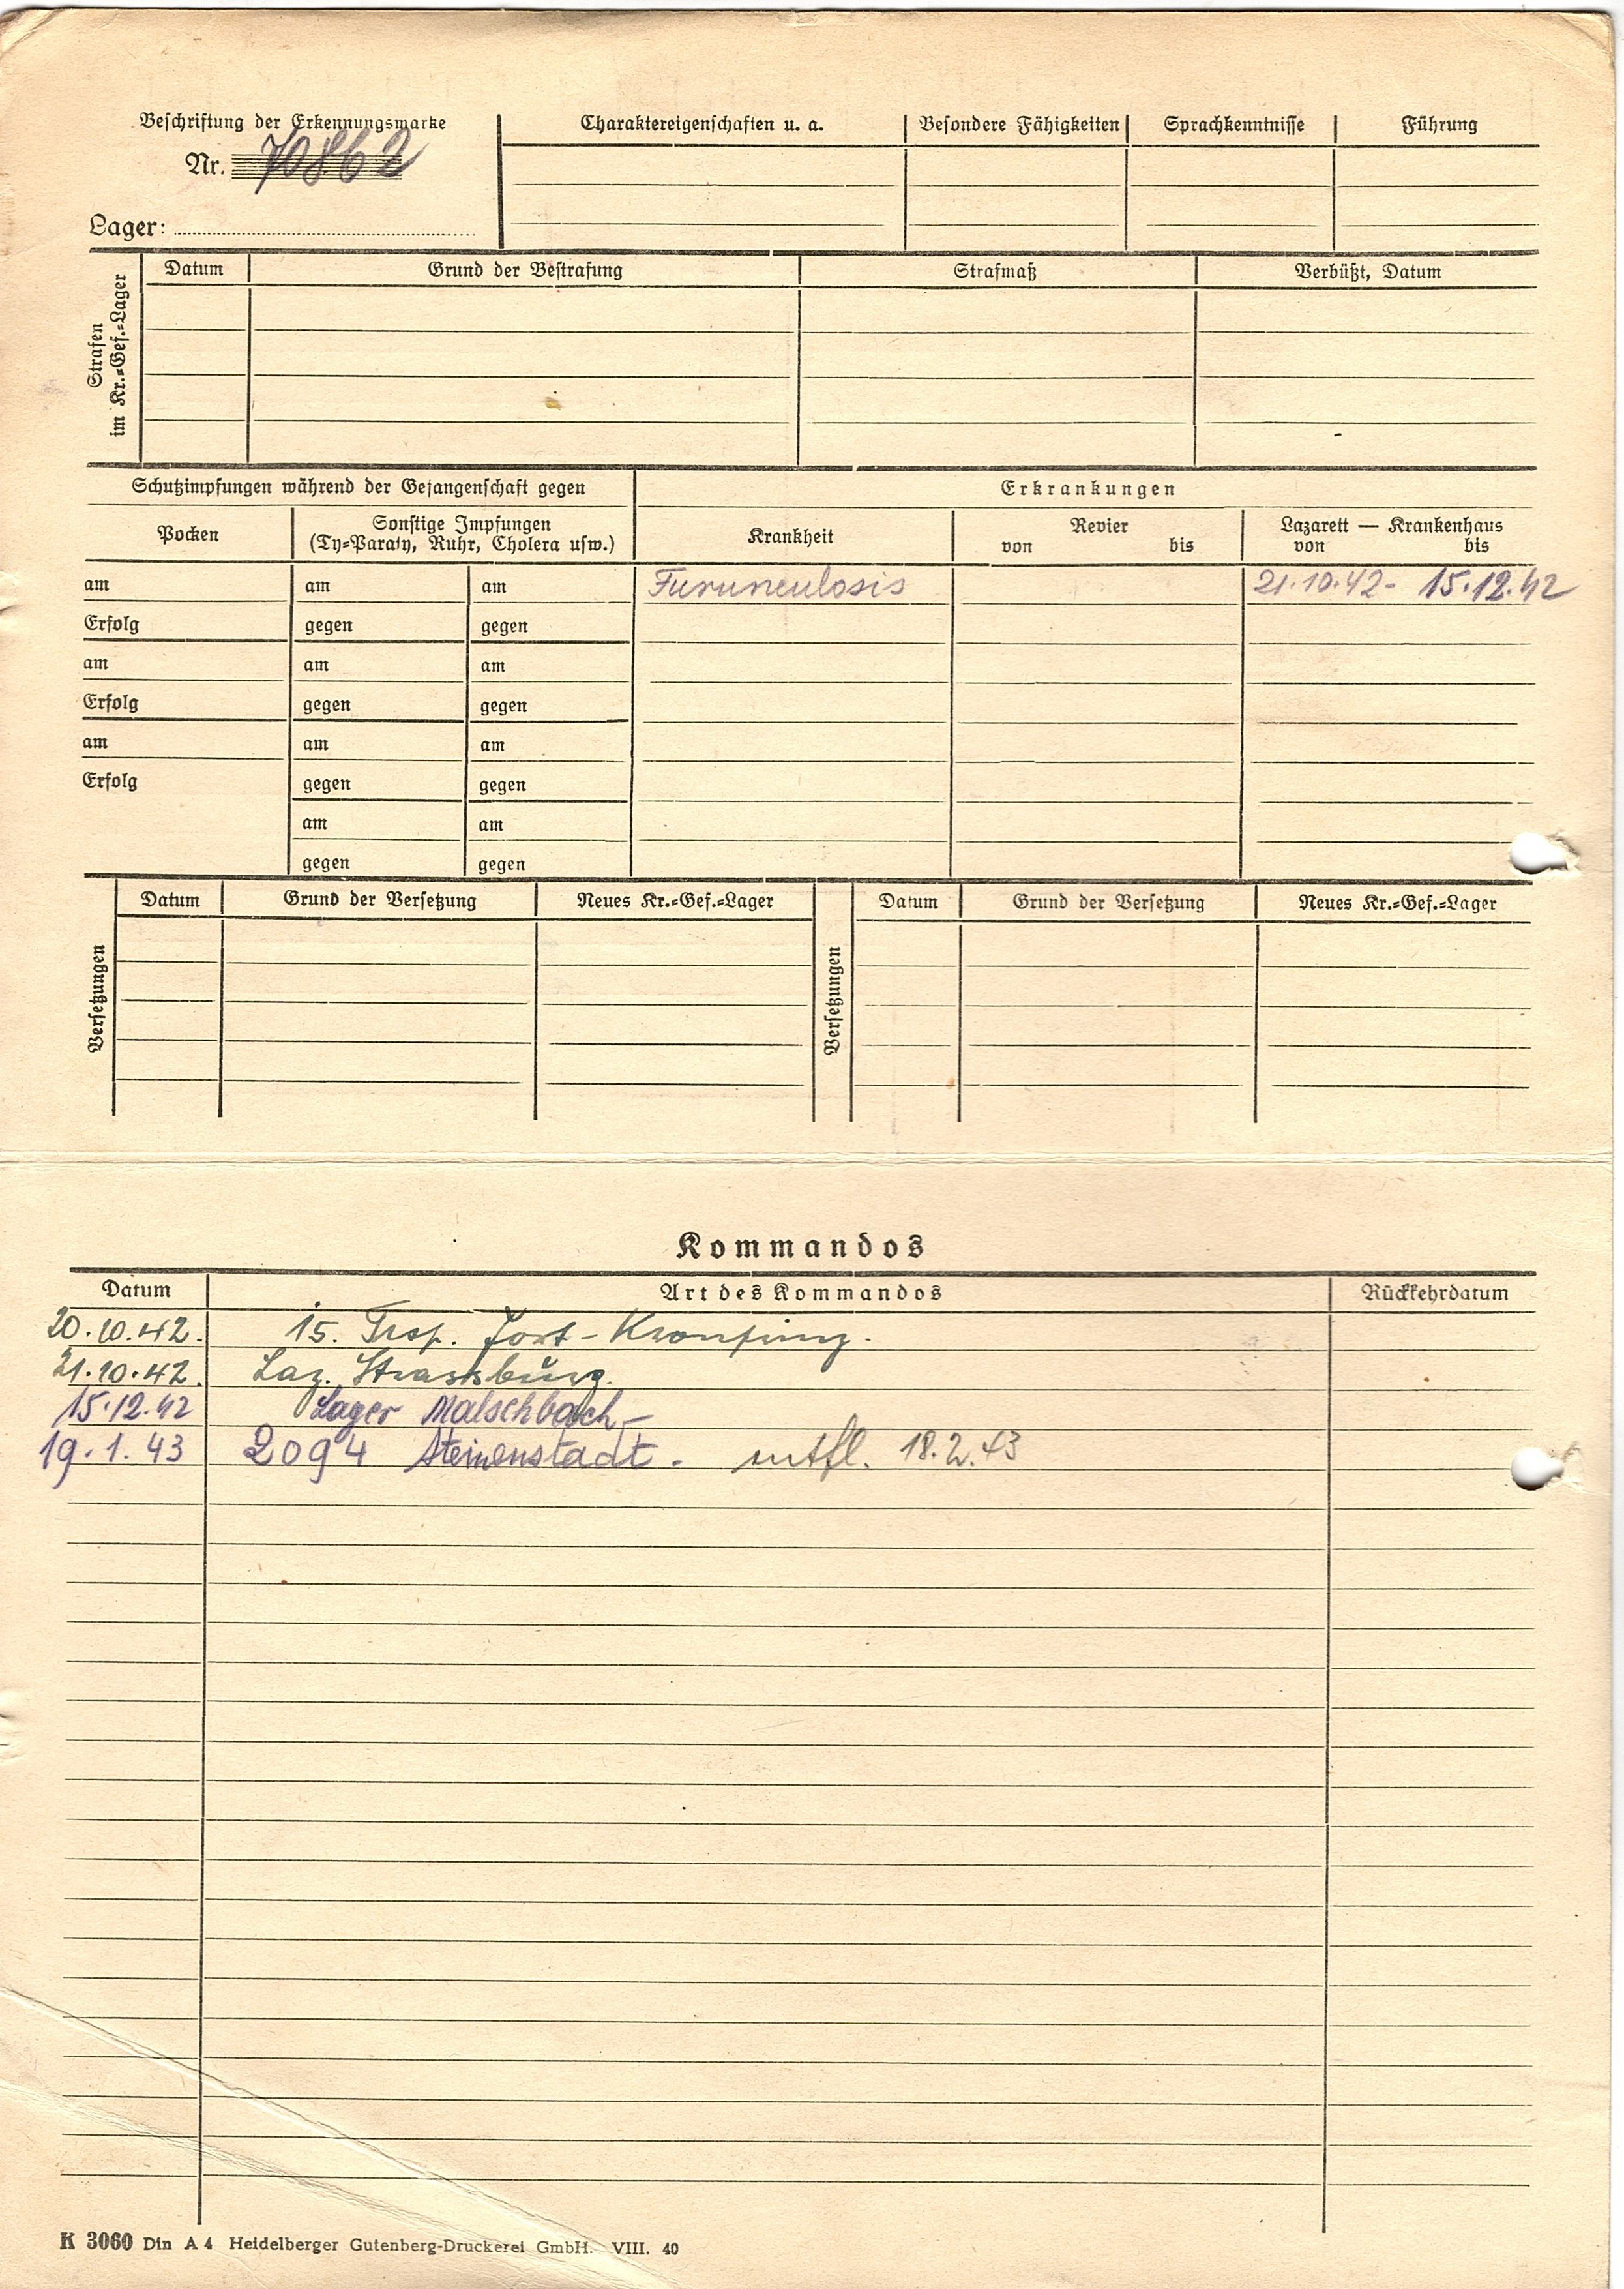 Beschriftung der Erkennungsmarke
Nr. 70862
Lager:
Charaktereigenschaften u. a. Besondere Fähigkeiten Sprachkenntnisse Führung
Strafen
im Kr.=Gef.=Lager
Datum Grund der Bestrafung Strafmaß Verbüßt, Datum
Schutzimpfungen während der Gefangenschaft gegen Erkrankungen
Pocken
Sonstige Impfungen
(Ty=Paraty, Ruhr, Cholera usw.)
Krankheit
Revier
von bis
Lazarett — Krankenhaus
von bis
am am am Furunculosis 21.10.42- 15.12.42
Erfolg gegen gegen
am am am
Erfolg gegen gegen
am am am
Erfolg gegen gegen
am am
gegen gegen
Versetzungen
Datum Grund der Versetzung Neues Kr.=Gef.=Lager
Versetzungen
Datum Grund der Versetzung Neues Kr.=Gef.=Lager
Kommandos
Datum Art des Kommandos Rückkehrdatum
20.10.42. 15. Trsp. Fort-Kronprinz.
21.10.42. Laz. Strassburg.
15.12.42 Lager Malschbach-
19.1.43 2094 Steinenstadt. entfl. 18.2.43
K 3060 Din A 4 Heidelberger Gutenberg-Druckerei GmbH. VIII. 40